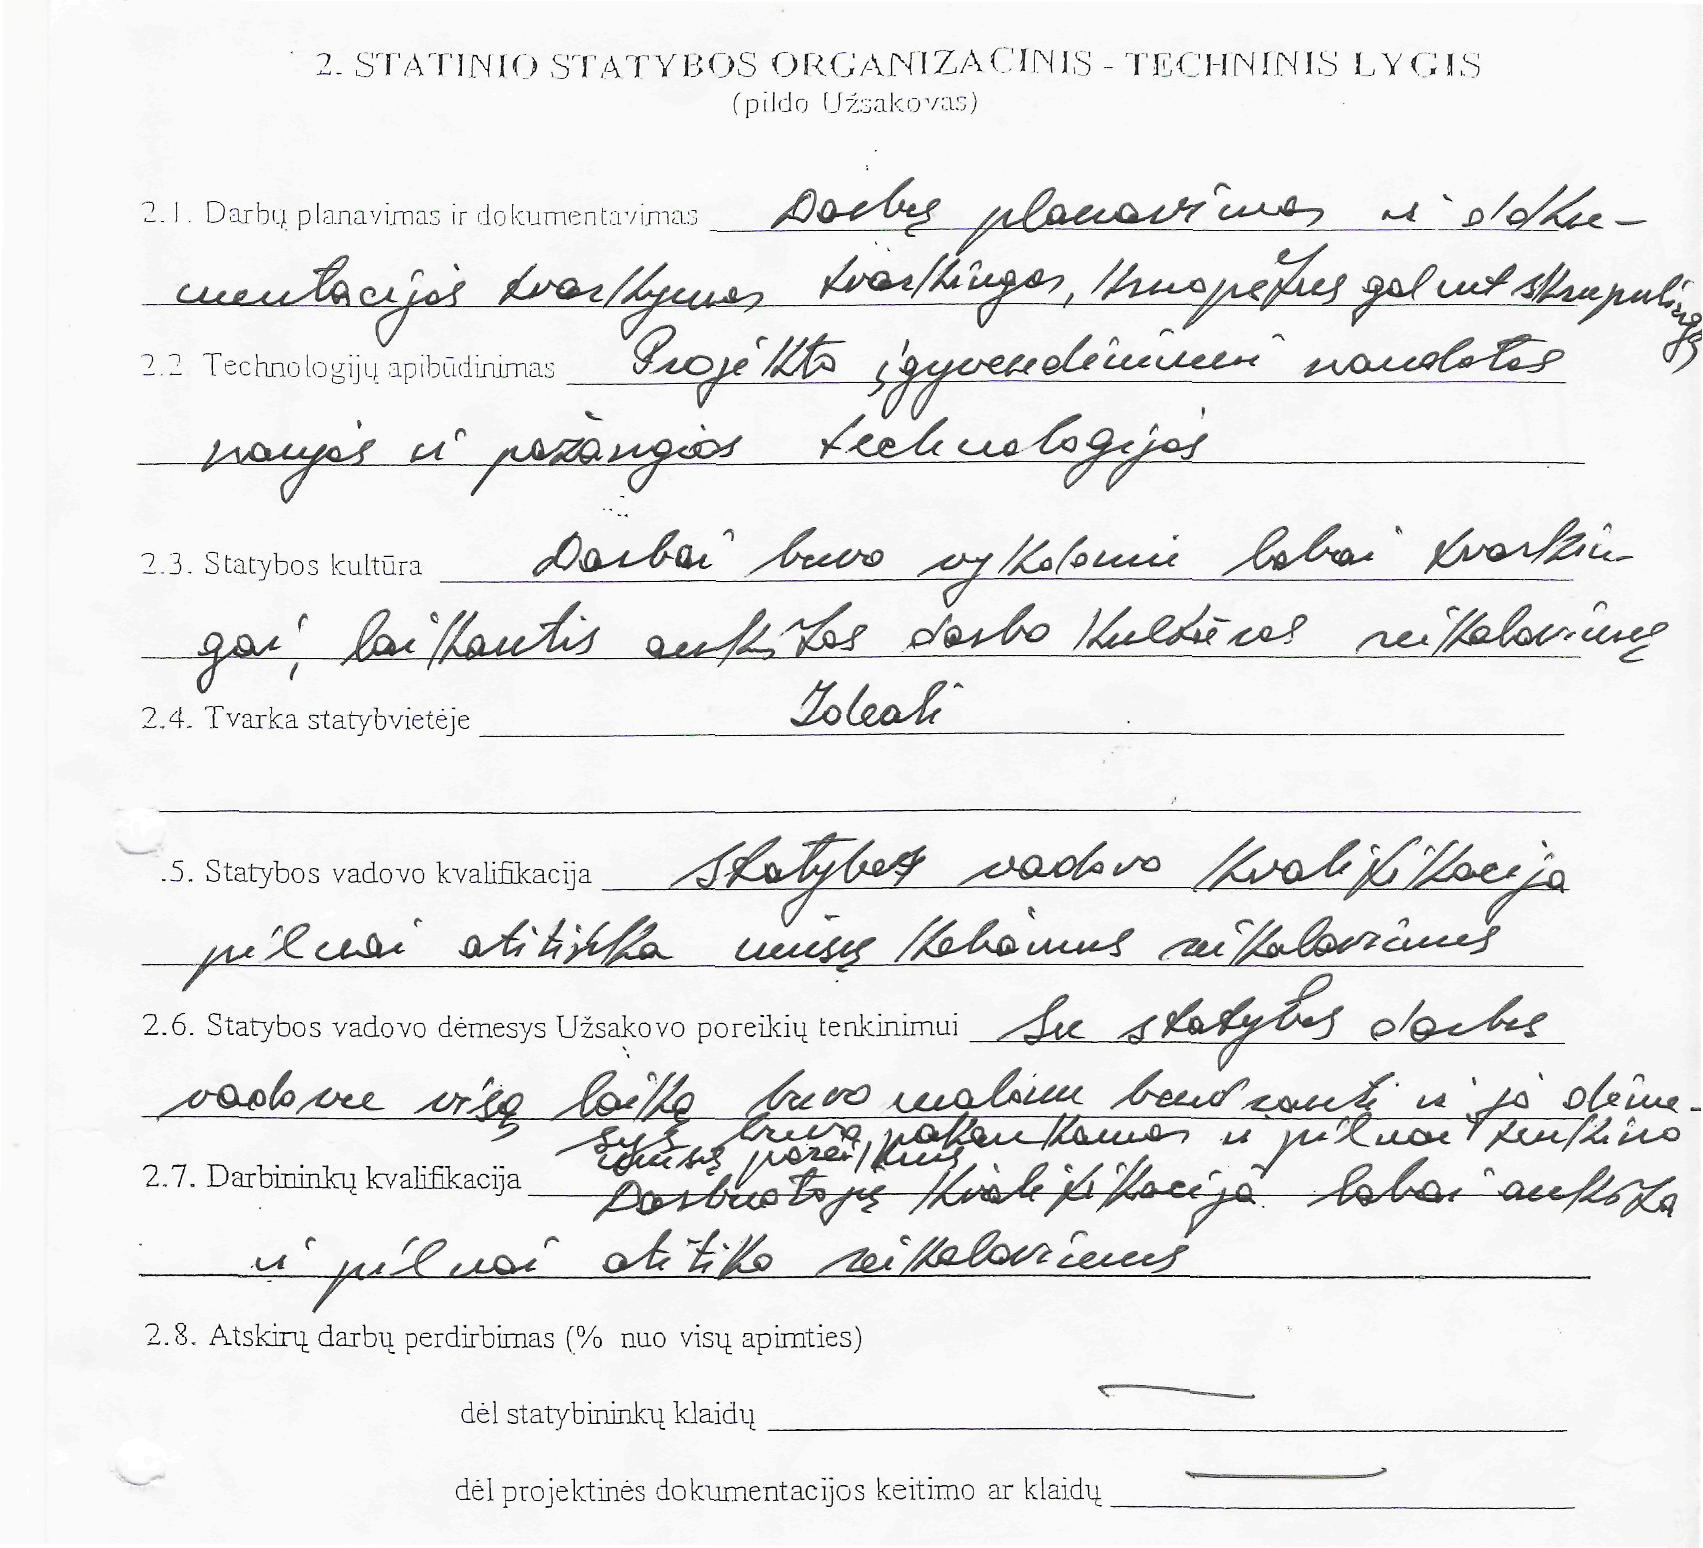 2. STATINIO STATYBOS ORGANIZACINIS - TECHNINIS LYGIS
(pildo Užsakovas)
2.1. Darbų planavimas ir dokumentavimas Darbų planavimas ir doku-
mentacijos tvarkymas tvarkingas, kruopštus gal net skrupulingas
2.2 Technologijų apibūdinimas Projekto įgyvendinimui naudotos
naujos ir pažangios technologijos
2.3. Statybos kultūra Darbai buvo vykdomi labai tvarkin-
gai, laikantis aukštos darbo kultūros reikalavimų
2.4. Tvarka statybvietėje Ideali
.5. Statybos vadovo kvalifikacija Statybos vadovo kvalifikacija
pilnai atitinka mūsų keliamus reikalavimus
2.6. Statybos vadovo dėmesys Užsakovo poreikių tenkinimui Su statybos darbų
vadovu visą laiką buvo malonu bendrauti ir jo dėme-
sys buvo pakankamas ir pilnai tenkino
mūsų poreikius
2.7. Darbininkų kvalifikacija Darbuotojų kvalifikacija labai aukšta
ir pilnai atitiko reikalavimus
2.8. Atskirų darbų perdirbimas (% nuo visų apimties)
dėl statybininkų klaidų —
dėl projektinės dokumentacijos keitimo ar klaidų —